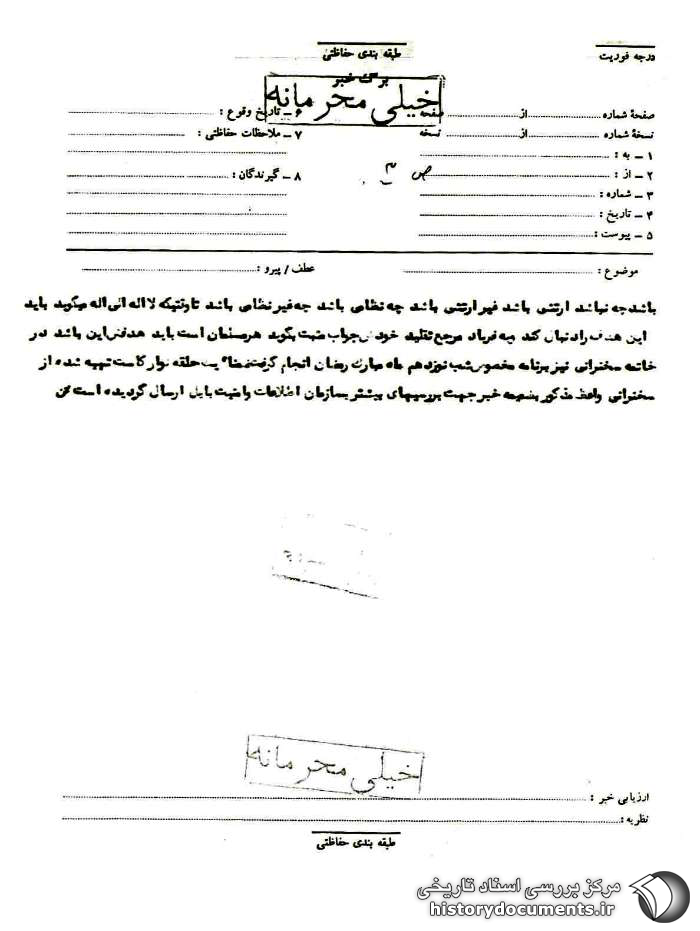 درجه فوریت
طبقه بندی حفاظتی
برگ خبر
خیلی محرمانه
صفحهٔ شماره ........ از ........ صفحه
نسخهٔ شماره ........ از ........ نسخه
۱ ـ به :
۲ ـ از :
۳ ـ شماره :
۴ ـ تاریخ :
۵ ـ پیوست :
ص ۳
۶ ـ تاریخ وقوع :
۷ ـ ملاحظات حفاظتی :
۸ ـ گیرندگان :
موضوع :
عطف / پیرو :
باشد چه نباشد ارتشی باشد غیر ارتشی باشد چه نظامی باشد چه غیر نظامی باشد تا وقتیکه لا اله الی اله میگوید باید
این هدف را دنبال کند و به فریاد مرجع تقلید خودش جواب مثبت بگوید هر مسلمان است باید هدفش این باشد در
خاتمه سخنرانی نیز برنامه مخصوص شب نوزدهم ماه مبارک رمضان انجام گرفت ضمنا" یک حلقه نوار کاست تهیه شده از
سخنرانی واعظ مذکور بضمیمه خبر جهت بررسیهای بیشتر بسازمان اطلاعات و امنیت بابل ارسال گردیده است
خیلی محرمانه
ارزیابی خبر :
نظریه :
طبقه بندی حفاظتی
مرکز بررسی اسناد تاریخی
historydocuments.ir